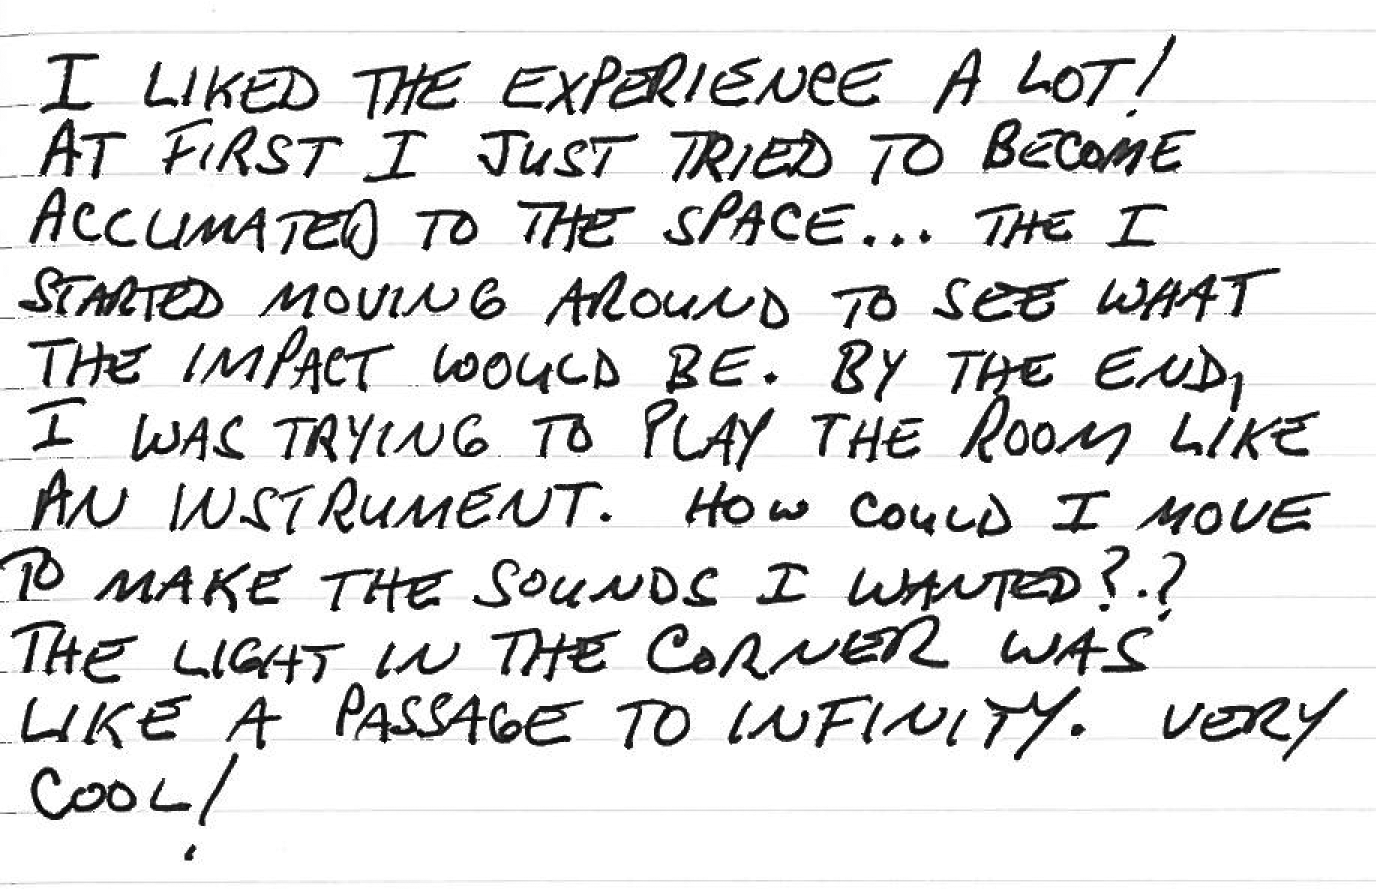 I LIKED THE EXPERIENCE A LOT!
AT FIRST I JUST TRIED TO BECOME
ACCLIMATED TO THE SPACE... THE I
STARTED MOVING AROUND TO SEE WHAT
THE IMPACT WOULD BE. BY THE END,
I WAS TRYING TO PLAY THE ROOM LIKE
AN INSTRUMENT. HOW COULD I MOVE
TO MAKE THE SOUNDS I WANTED??
THE LIGHT IN THE CORNER WAS
LIKE A PASSAGE TO INFINITY. VERY
COOL!